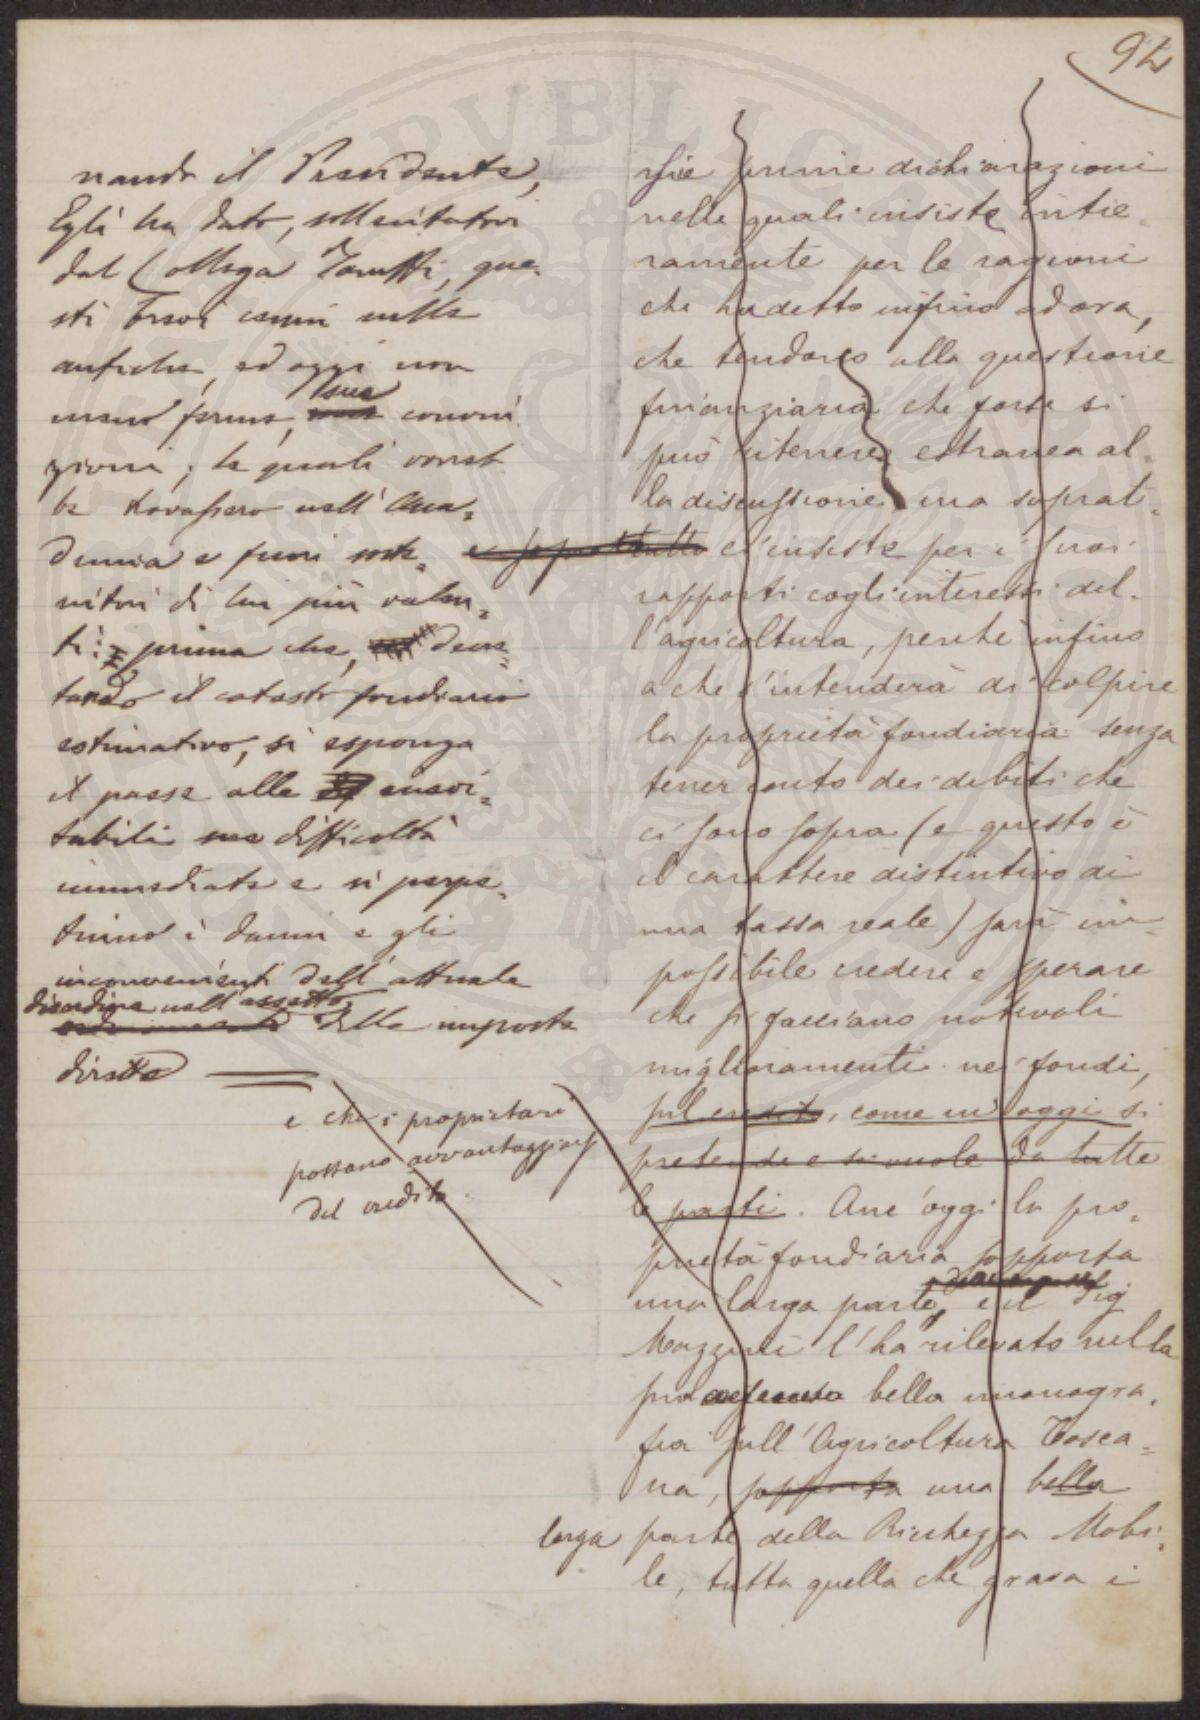 94
nando il Presidente,
Egli ha dato, sollecitatovi
dal Collega Taruffi, que=
sti brevi cenni sulle
antiche, ed oggi non
meno ferme, sue convin
zioni; le quali vorreb
be trovassero nell'Acca=
demia e fuori soste=
nitori di lui più valen=
ti: prima che, decre=
tando il catasto fondiario
estimativo, si esponga
il paese alle inevi=
tabili difficoltà
immediate e si perpe=
tuino i danni e gli
inconvenienti dell'attuale
disordine nell'assetto
della imposta
diretta
e che i proprietari
possano avvantaggiarsi
del credito.
sue prime dichiarazioni
nelle quali insiste intie=
ramente per le ragioni
che ha detto infino ad ora,
che tendono alla questione
finanziaria che forse si
può ritenere estranea al=
la discussione ma soprat=
e soprattutto e insiste per i suoi
rapporti cogli interessi del=
l'agricoltura, perchè infino
a che s'intenderà di colpire
la proprietà fondiaria senza
tener conto dei debiti che
ci sono sopra (e questo è
il carattere distintivo di
una tassa reale) sarà im=
possibile credere e sperare
che si facciano notevoli
miglioramenti nei fondi,
sul credito, come in oggi si
pretende e si vuole da tutte
le parti. Anc'oggi la pro=
prietà fondiaria sopporta
una larga parte, e il Sig
Mazzini l'ha rilevato nella
sua bella monogra=
fia sull'Agricoltura Tosca=
na, sopporta una bella
larga parte della Ricchezza Mobi=
le, tutta quella che grava i